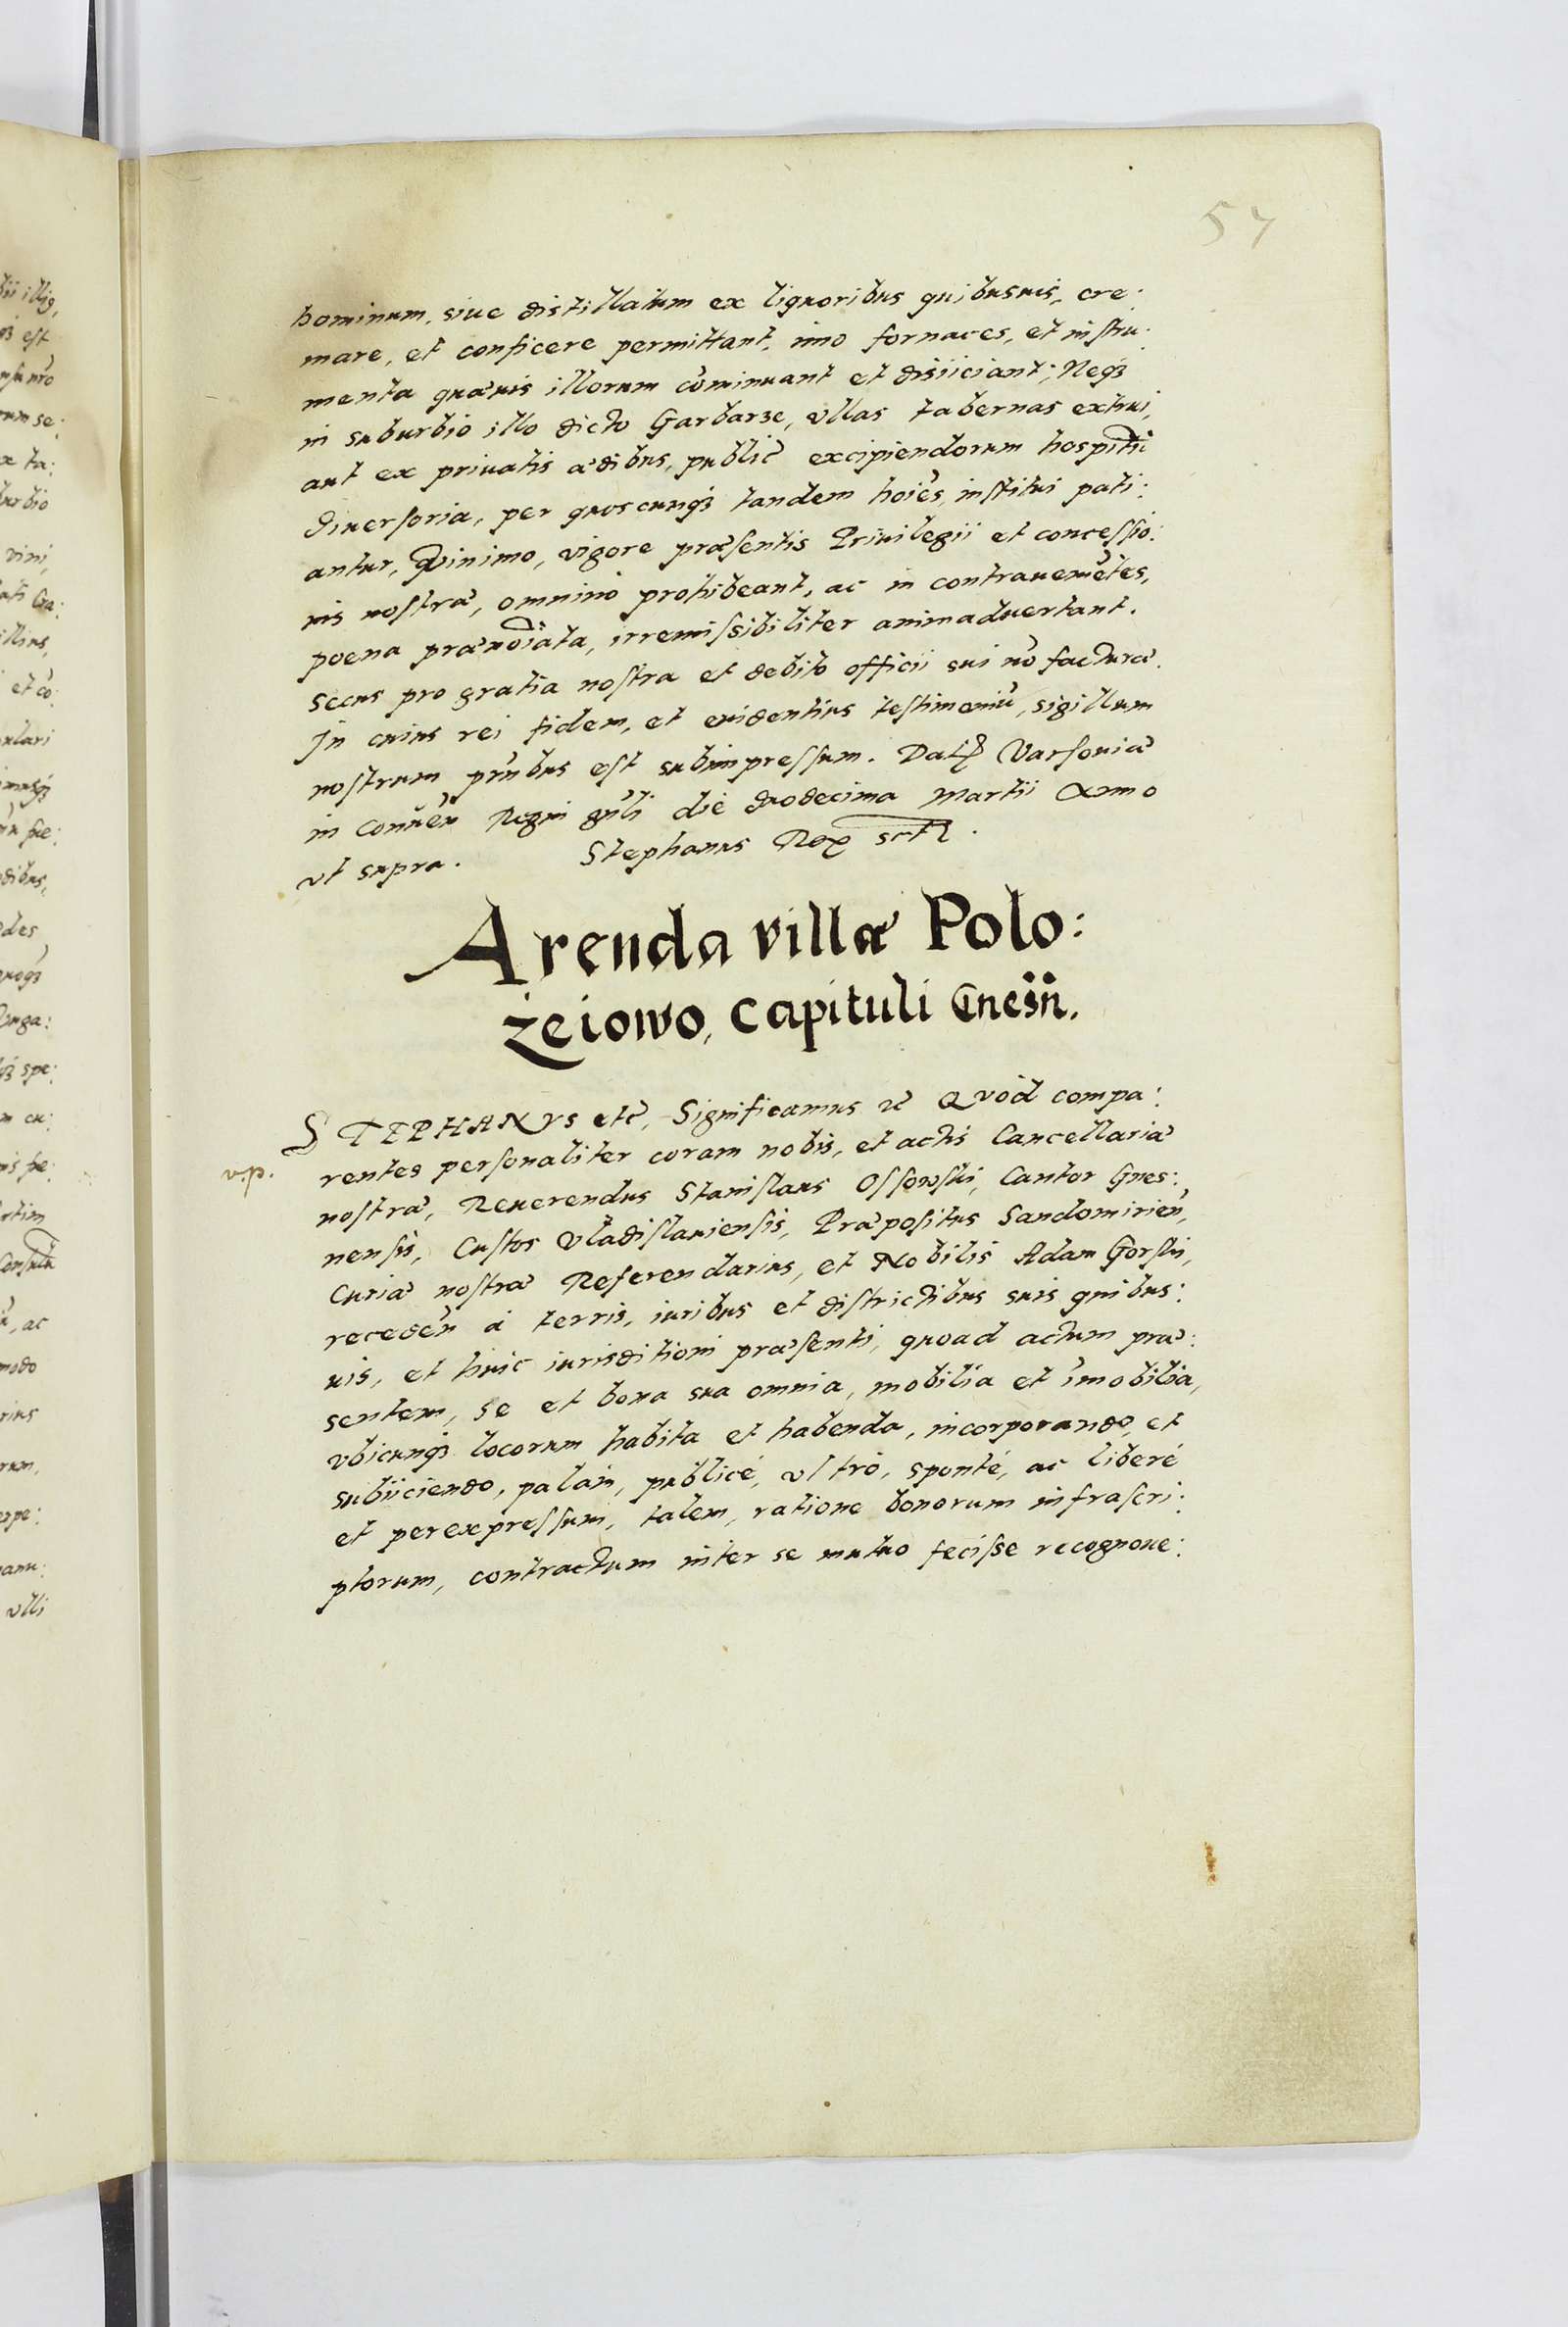 57
hominum, siue distillatum ex liquoribus quibusuis, cre:
mare, et conficere permittant, imo fornaces, et instru:
menta quæuis illorum cōminuant et disiiciant; Neqʒ
in suburbio illo dicto Garbarze, vllas tabernas extrui,
aut ex priuatis ædibus, public̄ excipiendorum hospitū
diuersoria, per quoscunqʒ tandem hoīes, institui pati:
antur, Quinimo, vigore præsentis Priuilegii et concessio:
nis nostræ, omnino prohibeant, ac in contrauenīetes,
poena prænoīata, irremissibiliter animaduertant.
secus pro gratia nostra et debito officii sui nō facturæ.
In cuius rei fidem, et euidentius testimoniū, sigillum
nostrum pn̄tibus est subimpressum. Datꝭ Varsouiæ
in conūen Regni gn̄li die duodecima Martii Anno
vt supra. Stephanus Rex sstꝭ.
Arenda villæ Polo:
żeiowo, capituli Gnesn̄.
STEPHANVS etc̄, Significamus etc̄ Quod compa:
v.p.
rentes personaliter coram nobis, et actis Cancellariæ
nostræ, Reuerendus Stanislaus Ossowski, Cantor Gnes:
nensis, Custos Vladislauiensis, Præpositus Sandomirien̄,
Curiæ nostræ Referendarius, et Nobilis Adam Gorski,
receden̄ à terris, iuribus et districtibus suis quibus:
uis, et huic iurisditioni præsenti, quoad actum præ:
sentem, se et bona sua omnia, mobilia et im̄obilia,
vbicunqʒ locorum habita et habenda, incorporando, et
subiiciendo, palàm, publicè, vltrò, spontè, ac liberè
et per expressum, talem, ratione bonorum infrascri:
ptorum, contractum inter se mutuo fecisse recognoue: